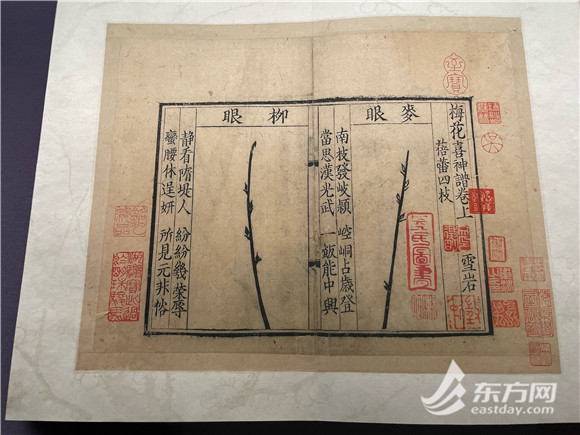 梅花喜神譜卷上
雪岩
蓓蕾四枝
麥眼
南枝發岐穎 崆峒占歲登
當思漢光武 一飯能中興
柳眼
静看隋堤人 紛紛幾榮辱
蠻腰休逞妍 所見元非俗
东方网
eastday.com